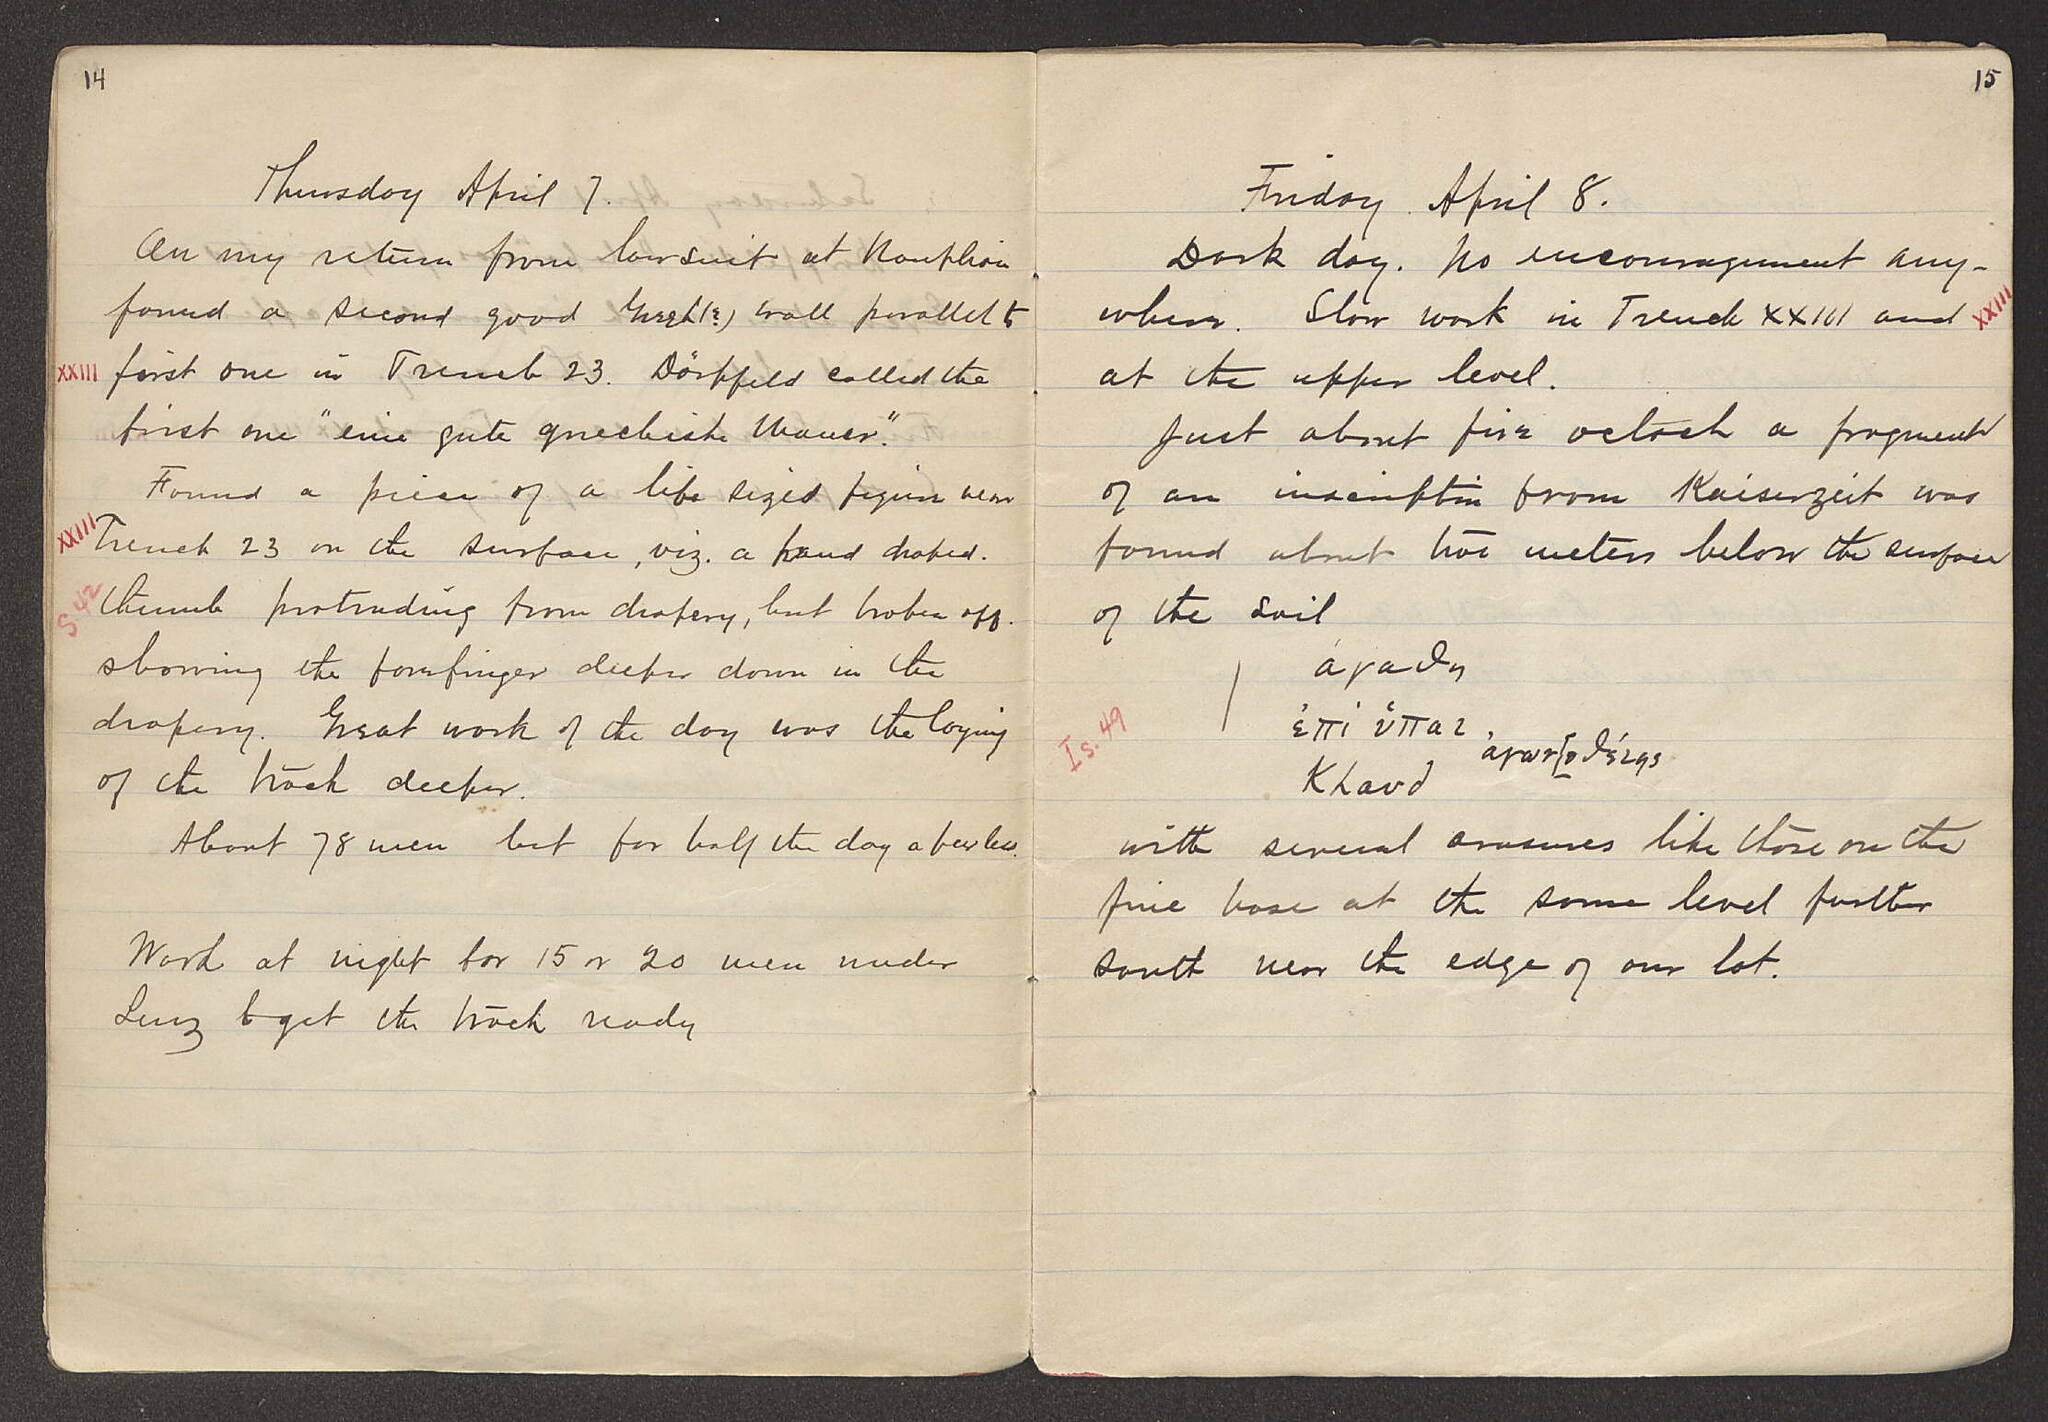 14
Thursday April 7.
On my return from lawsuit at Nauplion
found a second good Greek (?) wall parallel to
XXIII first one in Trench 23. Dörpfeld called the
first one "eine gute griechische Mauer."
Found a piece of a life sized figure near
XXIII Trench 23 on the surface, viz. a hand draped.
S 42 thumb protruding from drapery, but broken off.
showing the forefinger deeper down in the
drapery. Great work of the day was the laying
of the track deeper.
About 78 men but for half the day a few less.
Work at night for 15 or 20 men under
Lenz to get the track ready
15
Friday April 8.
Dark day. No encouragement any-
where. Slow work in Trench XXIII and XXIII
at the upper level.
Just about five oclock a fragment
of an inscription from Kaiserzeit was
found about two meters below the surface
of the soil
ἀγαθη
Is. 49 ἐπί ὑπατ
ἀγων[οθέτης
Κλαυδ
with several erasures like those on the
fine base at the same level further
south near the edge of our lot.